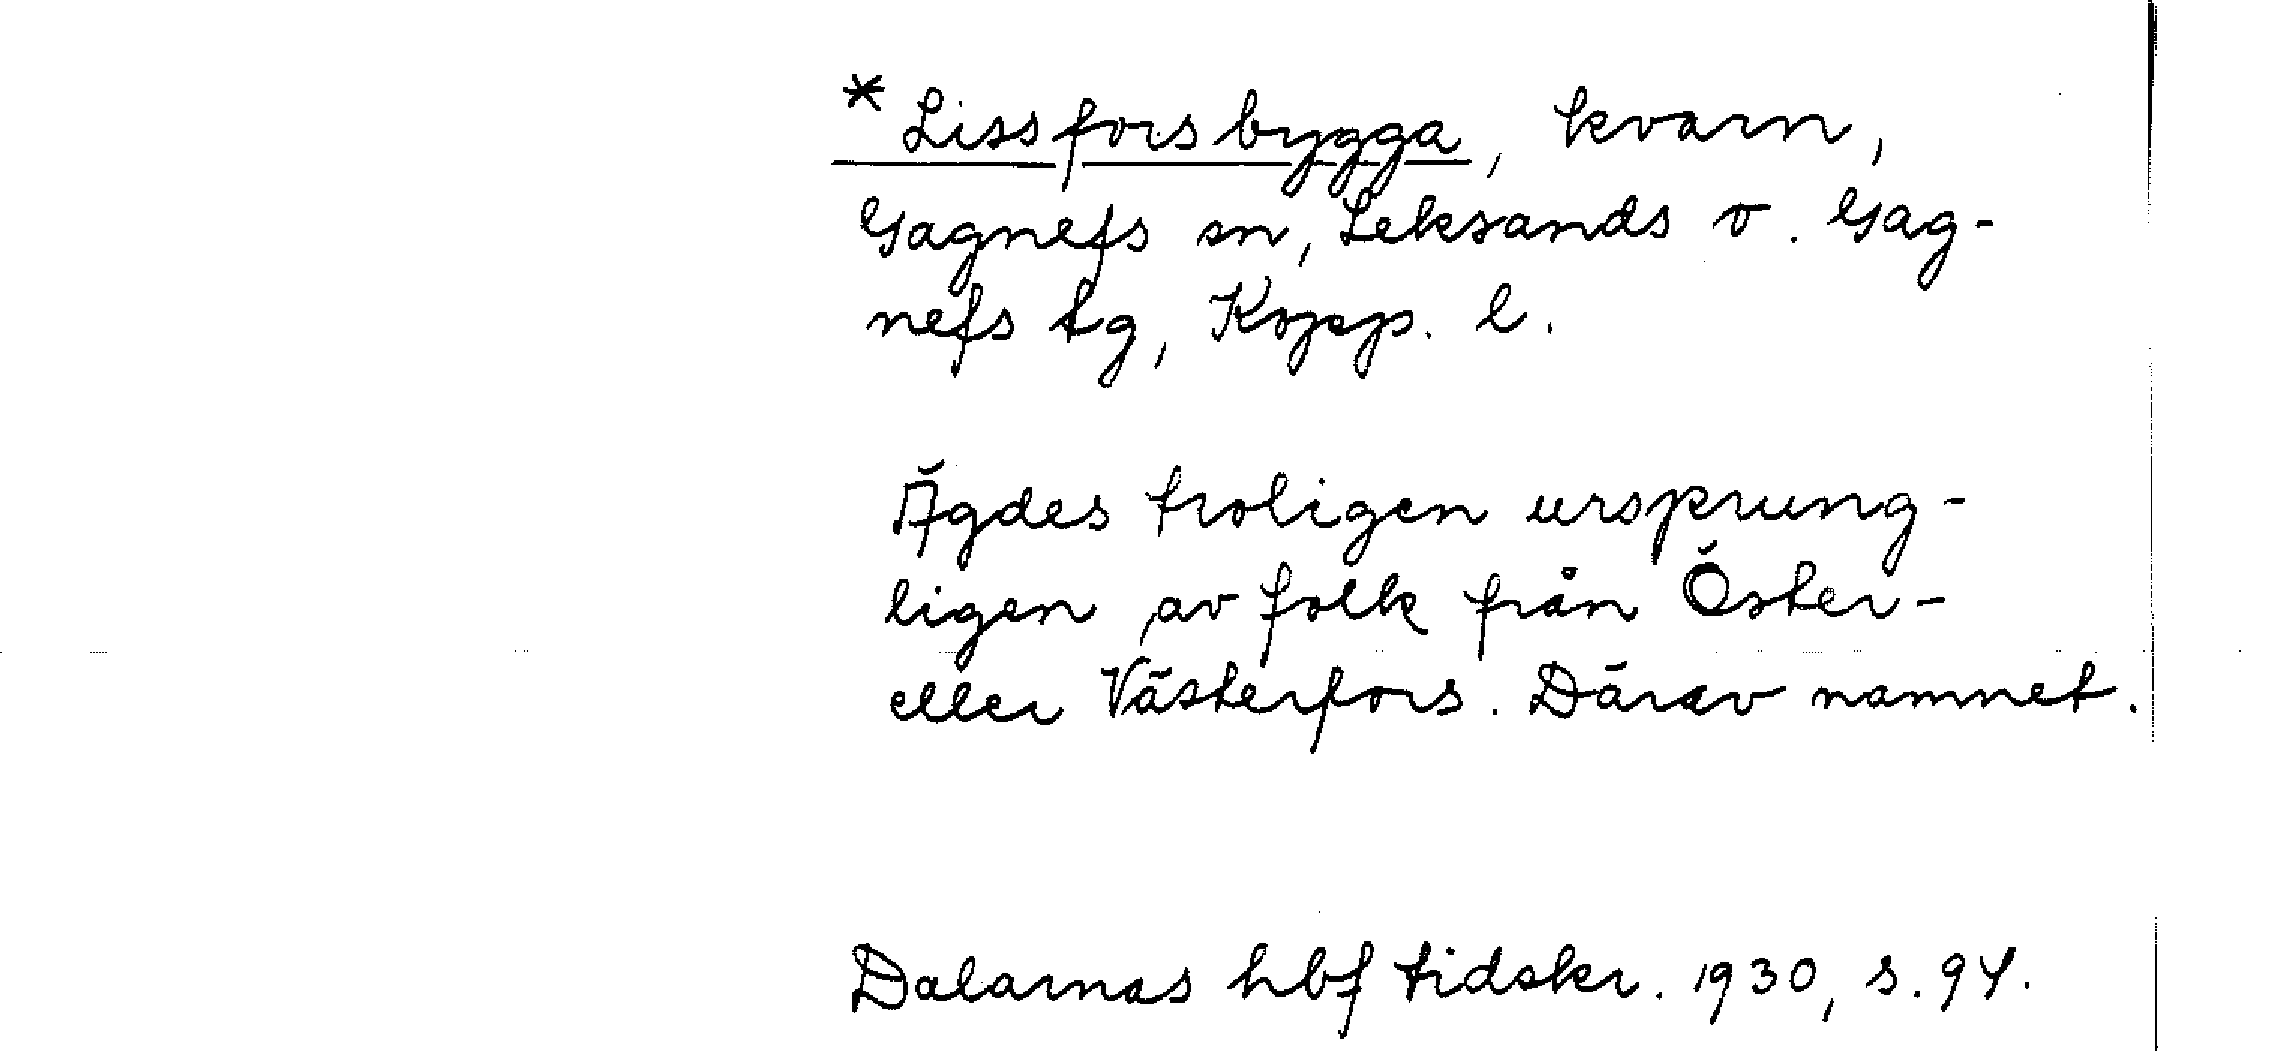 * Lissforsbygga, kvarn,
Gagnefs sn, Leksands o. Gag-
nefs tg, Kopp. l.
Ägdes troligen ursprung-
ligen av folk från Öster-
eller Västerfors. Därav namnet.
Dalarnas hbf tidskr. 1930, s. 94.